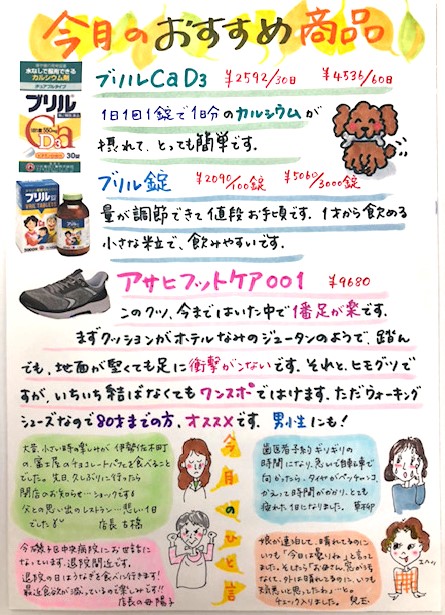 今月のおすすめ商品
ブリルCaD3 ¥2592/30日 ¥4536/60日
1日1回1錠で1日分のカルシウムが
摂れて、とっても簡単です。
水なしで服用できる
カルシウム剤
チュアブルタイプ
ブリル
Ca
D3
30錠
ブリル錠 ¥2090/100錠 ¥5060/3000錠
量が調節できて値段お手頃です。1才から飲める
小さな粒で、飲みやすいです。
ブリル錠
アサヒフットケア001 ¥9680
このクツ、今まではいた中で1番足が楽です。
まずクッションがホテルなみのジュータンのようで、踏ん
でも、地面が堅くても足に衝撃がこないです。それと、ヒモグツで
すが、いちいち結ばなくてもワンスポではけます。ただウォーキング
シューズなので80才までの方、オススメです。男性にも!
今月のひと言
大昔、小さい時の楽しみが 伊勢佐木町
の、富士屋のチョコレートパフェを食べること
でした。先日、久しぶりに行ったら
閉店のお知らせ…ショックです
父との思い出のレストラン…悲しい1日
でした
店長 古橋
歯医者予約ギリギリの
時間になり、急いで自転車で
向かったら、タイヤがペッチャンコ。
かえって時間がかかり、とても
疲れた1日になりました。
今磯子区中央病院にお世話に
なっています。退院間近です。
退院の日はうなぎを食べに行きます!
最近食欲が減っているので楽しみです!!
店長の母 陽子
娘が連泊して、晴れてるのに
いつも「今日は曇りね」と言って
ました。そしたら「お母さん、窓がよご
なくて、外は晴れてるのに、いつも
天気悪いと思ったわよ」…と。
エヘッ